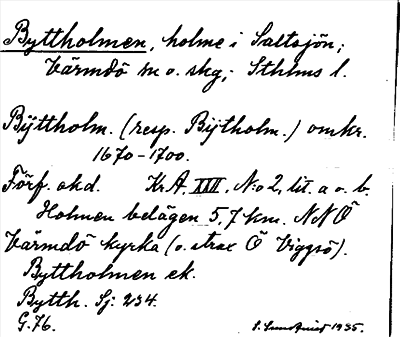 Byttholmen, holme i Saltsjön,
Värmdö sn o. skg, Sthlms l.
Bÿttholm. (resp. Bÿtholm.) omkr.
1670-1700.
Förf. okd. Kr A, XXII, N:o 2, lit. a o. b.
Holmen belägen 5,7 km. NNÖ
Värmdö kyrka (o. strax Ö Viggsö).
Byttholmen ek.
Byttb. Sj: 234.
G. 76.
1935.